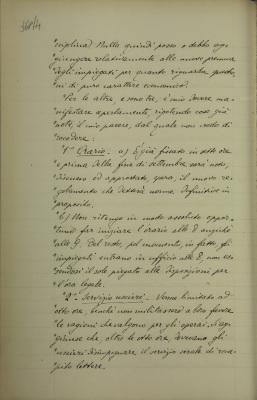 "ciplina). Nulla, quindi posso o debbo ag-
"giungere relativamente alle nuove premure
"degli impiegati per quanto riguarda questio-
"ni di puro carattere economico.
"Per le altre, esonetre, è mio dovere ma-
"nifestare apertamente, ripetendo cose già
"note, il mio parere, dal quale non credo di
"recedere:
"1° Orario. a) È già fissato in otto ore
"e prima della fine di settembre sarà noto,
"discusso ed approvato, spero, il nuovo re-
"golamento che detterà norme definitive in
"proposito.
"b) Non ritengo in modo assoluto oppor-
"tuno far iniziare l'orario alle 8 anziché
"alle 9. Del resto, pel momento, in fatto, gli
"impiegati entrano in ufficio alle 8, non es-
"sendosi il sole piegato alle disposizioni per
"l'ora legale.
"2° - Servizio uscieri. Venne limitato ad
"otto ore, benché non militassero a loro favore
"le ragioni che valgono per gli operai. Si ag-
"giunse che, oltre le otto ore, dovevano gli
"uscieri disimpegnare il servizio serale di reca-
"pito lettere.